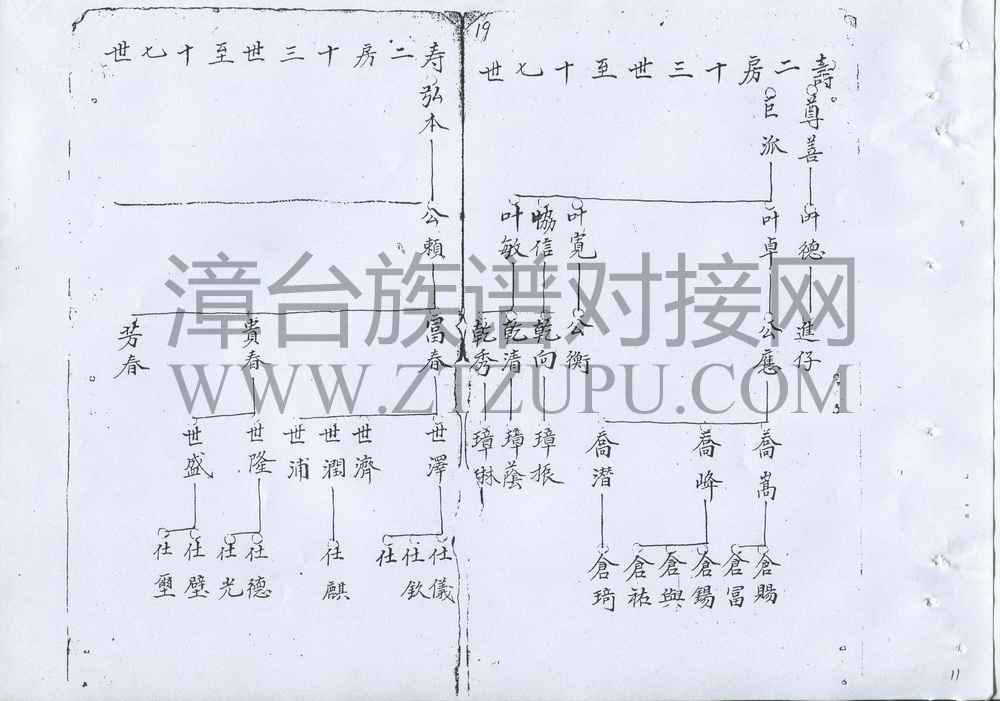 19
壽二房十三世至十七世
尊善 巨派
叶德 叶卓 叶寛 協信 叶敏
進仔 公應 公衡 乾向 乾清 乾秀
喬嵩 喬峰 喬潜 璋振 璋蔭 璋琳
倉賜 倉冨 倉錫 倉與 倉祐 倉琦
寿二房十三世至十七世
弘本
公賴
富春 貴春 芳春
世澤 世濟 世潤 世浦 世隆 世盛
仕儀 仕欽 仕 仕麒 仕德 仕光 仕璧 仕璽
漳台族谱对接网
WWW.ZTZUPU.COM
11